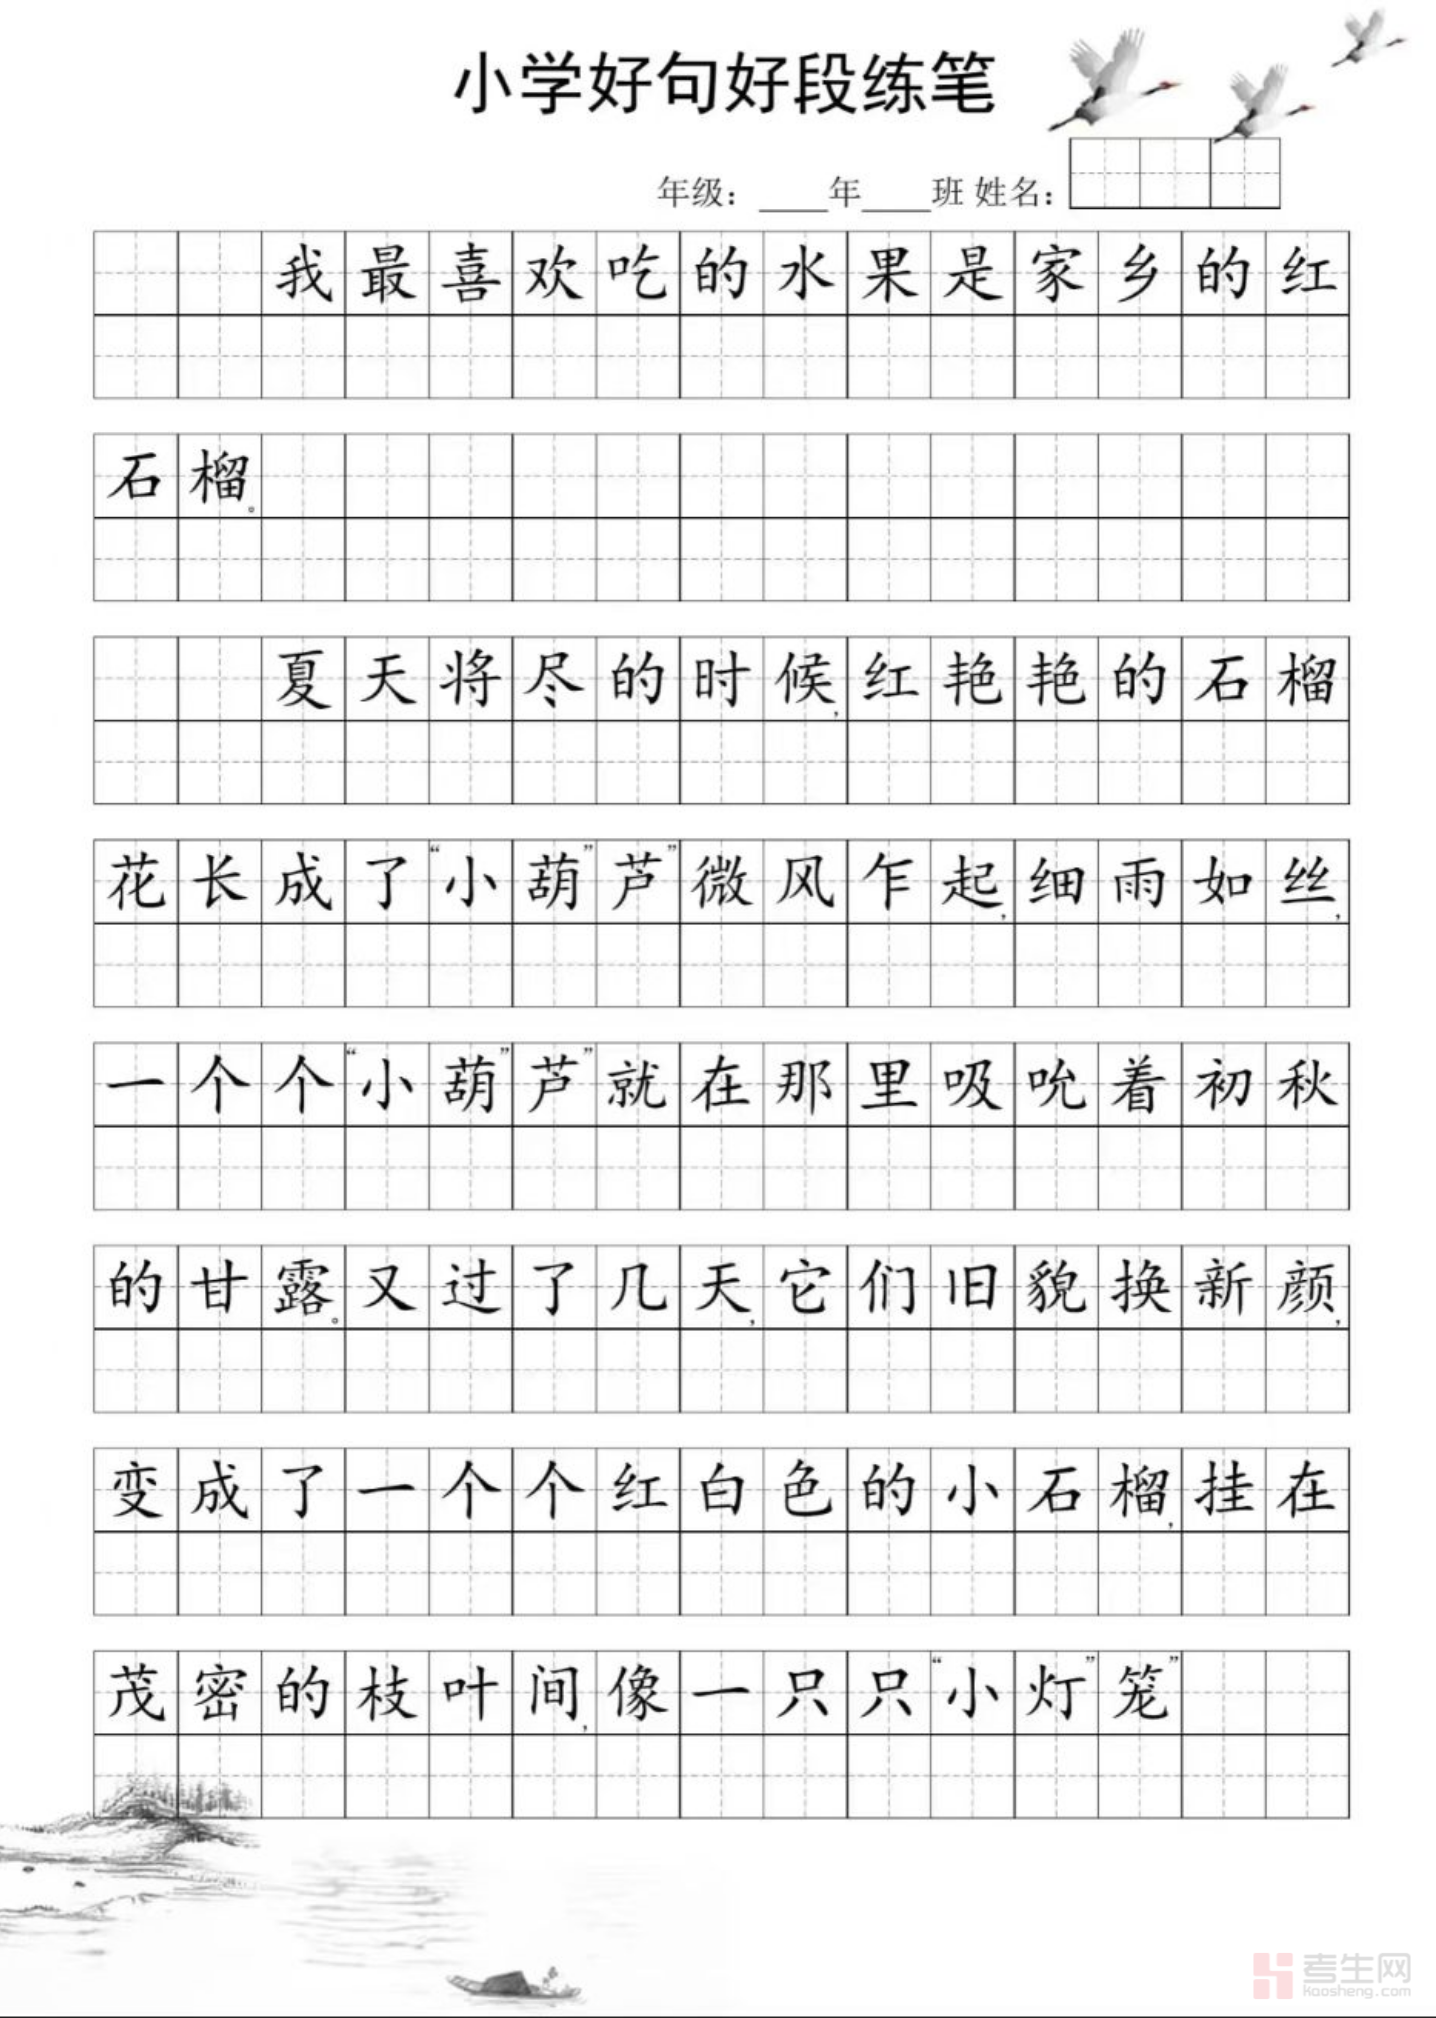 小学好句好段练笔
年级：____年____班 姓名：
我最喜欢吃的水果是家乡的红
石榴。
夏天将尽的时候，红艳艳的石榴
花长成了“小葫”芦”微风乍起，细雨如丝，
一个个“小葫”芦”就在那里吸吮着初秋
的甘露。又过了几天，它们旧貌换新颜，
变成了一个个红白色的小石榴，挂在
茂密的枝叶间，像一只只“小灯”笼”
考生网
kaosheng.com